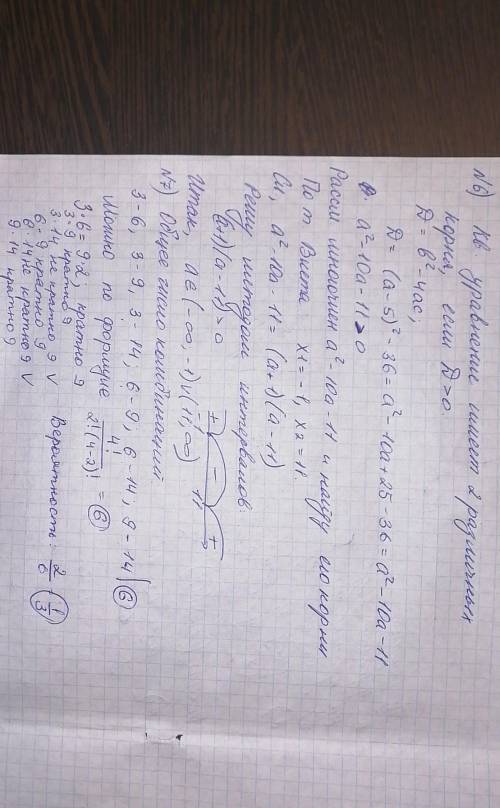 №6) Кв уравнение имеет 2 различных
корня, если D > 0.
D = b² - 4ac,
D = (a - 5)² - 36 = a² - 10a + 25 - 36 = a² - 10a - 11
a² - 10a - 11 > 0
Рассм многочлен a² - 10a - 11 и найду его корни
По т Виета x1 = -1, x2 = 11.
a² - 10a - 11 = (a + 1)(a - 11)
Решу методом интервалов:
(a+1)(a - 11) > 0
+ - +
-1 11
Итак, a ∈ (-∞, -1) ∪ (11, ∞)
№7) Общее число комбинаций
3 - 6, 3 - 9, 3 - 14; 6 - 9, 6 - 14, 9 - 14 | 6
Можно по формуле 4! / 2!(4-2)! = 6
3·6 = 92, кратно 9
3·9 кратно 9
3·14 не кратно 9 V
6·9 кратно 9
6·14 не кратно 9 V
9·14 кратно 9
Вероятность: 2/6 = 1/3